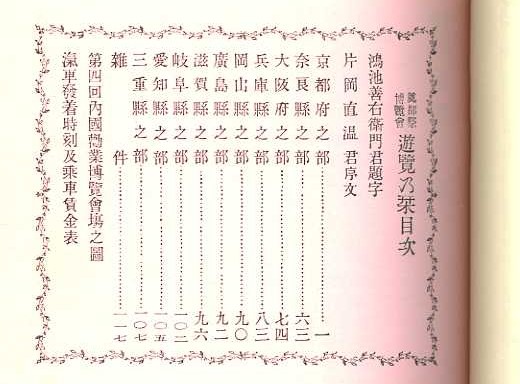 奠都祭
博覽會
遊覽乃栞目次
鴻池善右衛門君題字
片岡直温君序文
京都府之部……一
奈良縣之部……六三
大阪府之部……七四
兵庫縣之部……八三
岡山縣之部……九〇
廣島縣之部……九二
滋賀縣之部……九六
岐阜縣之部……一〇二
愛知縣之部……一〇五
三重縣之部……一〇七
雜件……一一七
第四回内國勸業博覽會塲之圖
滊車發着時刻及乘車賃金表